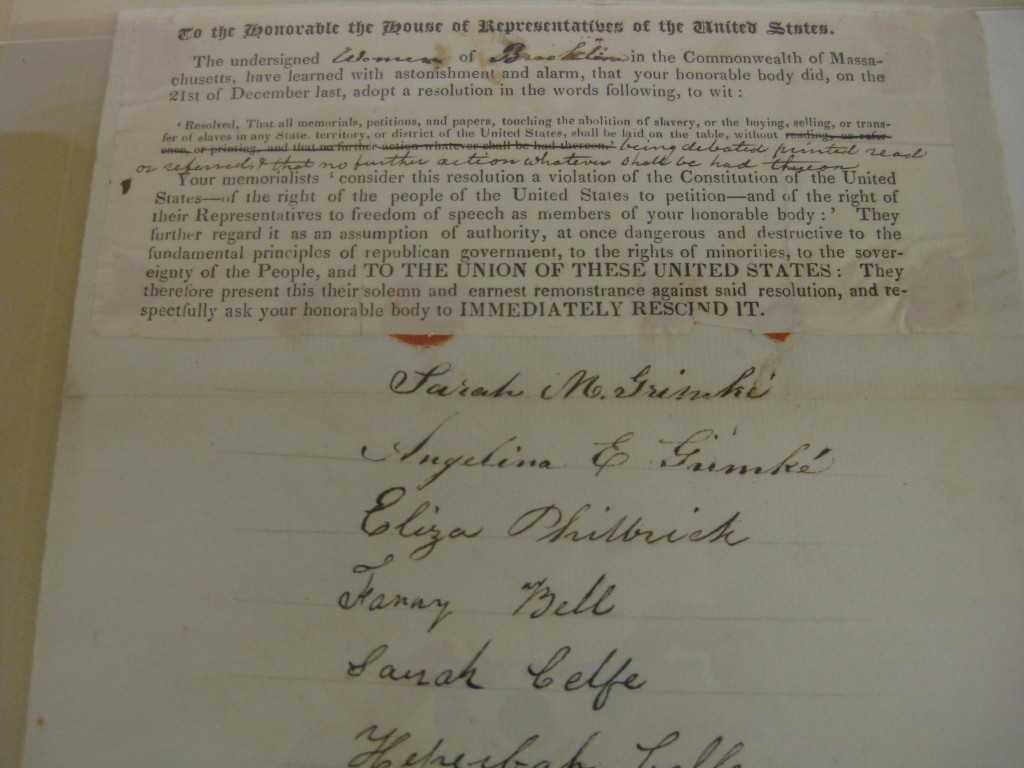 To the Honorable the House of Representatives of the United States.
The undersigned Women of Brookline in the Commonwealth of Massa-
chusetts, have learned with astonishment and alarm, that your honorable body did, on the
21st of December last, adopt a resolution in the words following, to wit:
'Resolved, That all memorials, petitions, and papers, touching the abolition of slavery, or the buying, selling, or trans-
fer of slaves in any State, territory, or district of the United States, shall be laid on the table, without reading, or refer-
ence, or printing, and that no further action whatever shall be had thereon.' being debated printed read
or referred & that no further action whatever shall be had thereon
Your memorialists 'consider this resolution a violation of the Constitution of the United
States—of the right of the people of the United States to petition—and of the right of
their Representatives to freedom of speech as members of your honorable body:' They
further regard it as an assumption of authority, at once dangerous and destructive to the
fundamental principles of republican government, to the rights of minorities, to the sover-
eignty of the People, and TO THE UNION OF THESE UNITED STATES: They
therefore present this their solemn and earnest remonstrance against said resolution, and re-
spectfully ask your honorable body to IMMEDIATELY RESCIND IT.
Sarah M. Grimké
Angelina E Grimké
Eliza Philbrick
Fanny Bell
Sarah Celfe